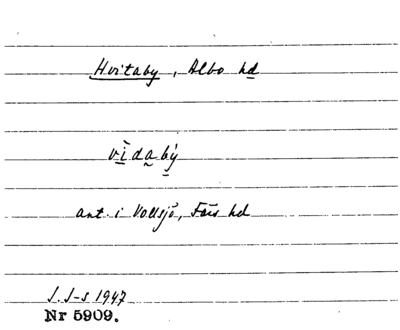 Hvitaby, Albo hd
vìdabý
ant. i Vollsjö, Färs hd
J. J-s 1947
Nr 5909.